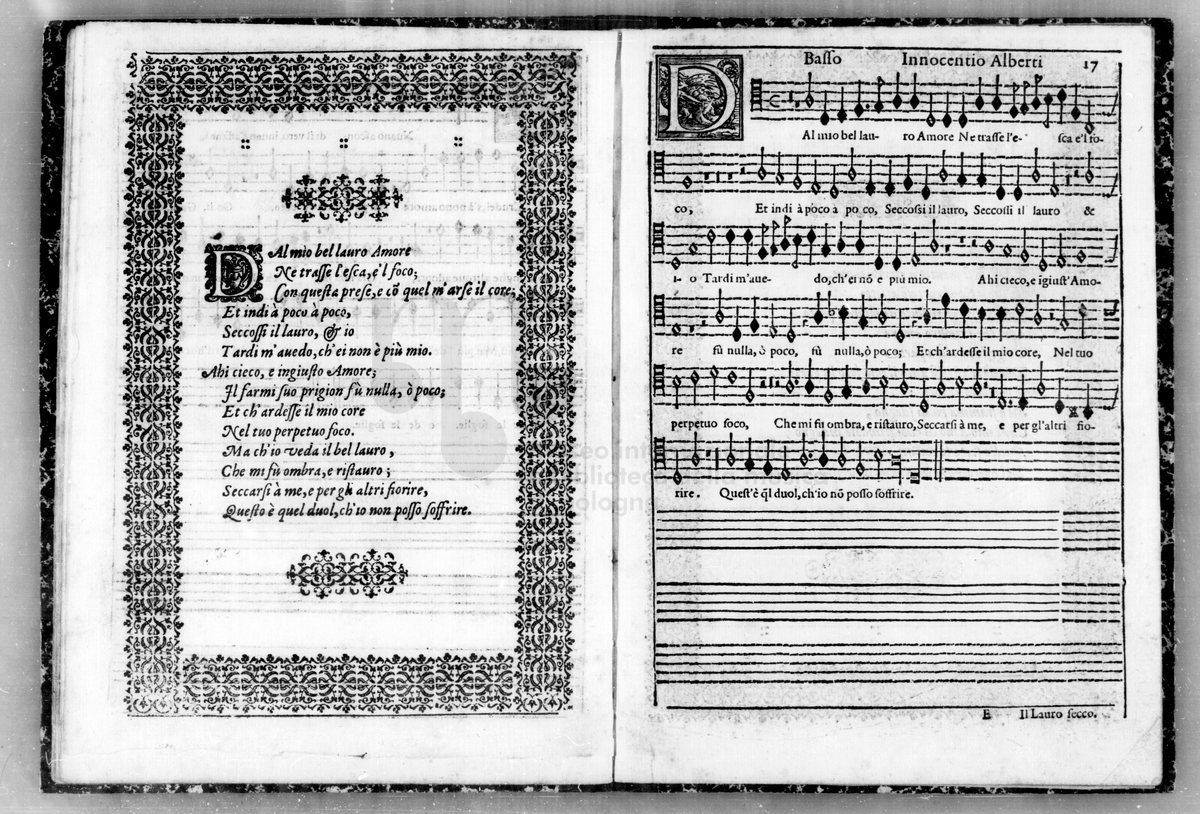 DAl mio bel lauro Amore
Ne trasse l'esca, e'l foco;
Con questa prese, e cõ quel m'arse il core;
Et indi à poco à poco,
Seccossi il lauro, & io
Tardi m'avedo, ch'ei non è più mio.
Ahi cieco, e ingiusto Amore;
Il farmi suo prigion fù nulla, ò poco;
Et ch'ardesse il mio core
Nel tuo perpetuo foco.
Ma ch'io veda il bel lauro,
Che mi fù ombra, e ristauro;
Seccarsi à me, e per gli altri fiorire,
Questo è quel duol, ch'io non posso soffrire.
Basso Innocentio Alberti 17
DAl mio bel lau- ro Amore Ne trasse l'e- sca e'l fo-
co; Et indi à poco à po co, Seccossi il lauro, Seccossi il lauro &
i- o Tardi m'aue- do, ch'ei nõ e più mio. Ahi cieco, e igiust'Amo-
re fù nulla, ò poco, fù nulla, ò poco; Et ch'ardesse il mio core, Nel tuo
perpetuo foco, Che mi fu ombra, e ristauro, Seccarsi à me, e per gl'altri fio-
rire. Quest'è q̃l duol, ch'io nõ posso soffrire.
E Il Lauro secco.